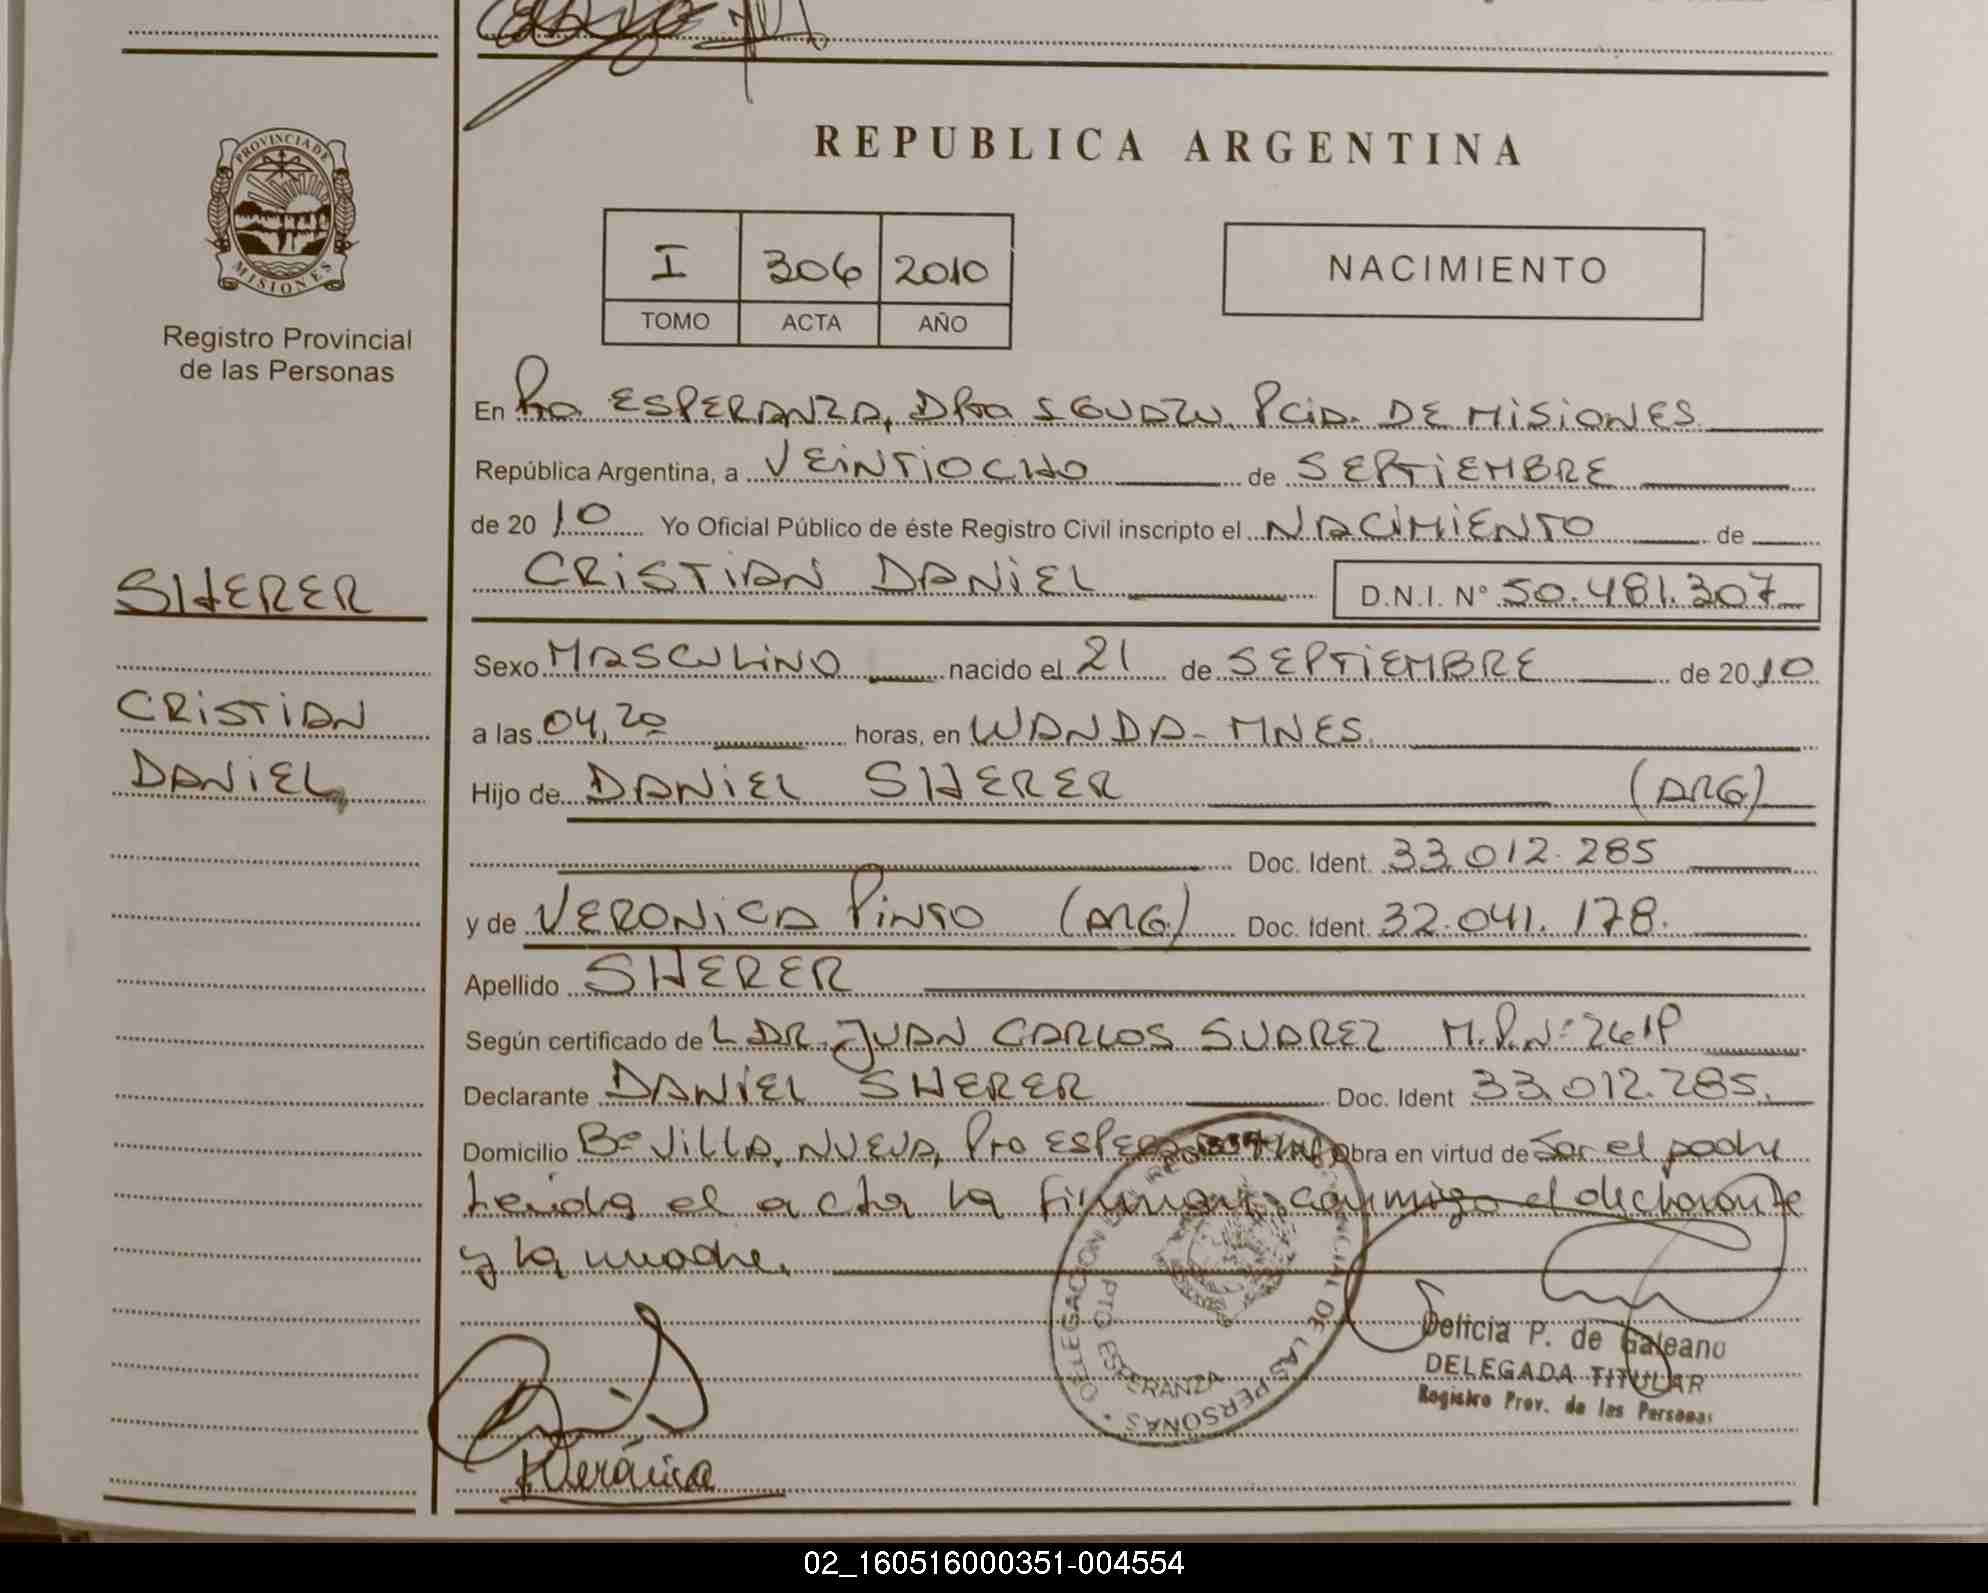 REPUBLICA ARGENTINA
PROVINCIA DE
MISIONES
Registro Provincial
de las Personas
I 306 2010
TOMO ACTA AÑO
NACIMIENTO
En Pto ESPERANZA, DPto IGUAZU, PCIA. DE MISIONES
República Argentina, a VEINTIOCHO de SEPTIEMBRE
de 2010 Yo Oficial Público de éste Registro Civil inscripto el NACIMIENTO de
CRISTIAN DANIEL D.N.I. N° 50.481.307
SHERER
CRISTIAN
DANIEL
Sexo MASCULINO nacido el 21 de SEPTIEMBRE de 2010
a las 04,20 horas, en WANDA - MNES.
Hijo de DANIEL SHERER (ARG)
Doc. Ident. 33.012.285
y de VERONICA PINTO (ARG) Doc. Ident. 32.041.178.
Apellido SHERER
Según certificado de L DR. JUAN CARLOS SUAREZ M.P.N:
Declarante DANIEL SHERER Doc. Ident 33.012.285.
Domicilio B° VILLA NUEVA, Pto Obra en virtud de Ser el padre
Leida el acta la firman conmigo el declarante
y la madre.
DELEGACION REGISTRO PROVINCIAL DE LAS PERSONAS
PTO ESPERANZA
Delicia P. de Galeano
DELEGADA TITULAR
Registro Prov. de las Personas
Verónica
02_160516000351-004554